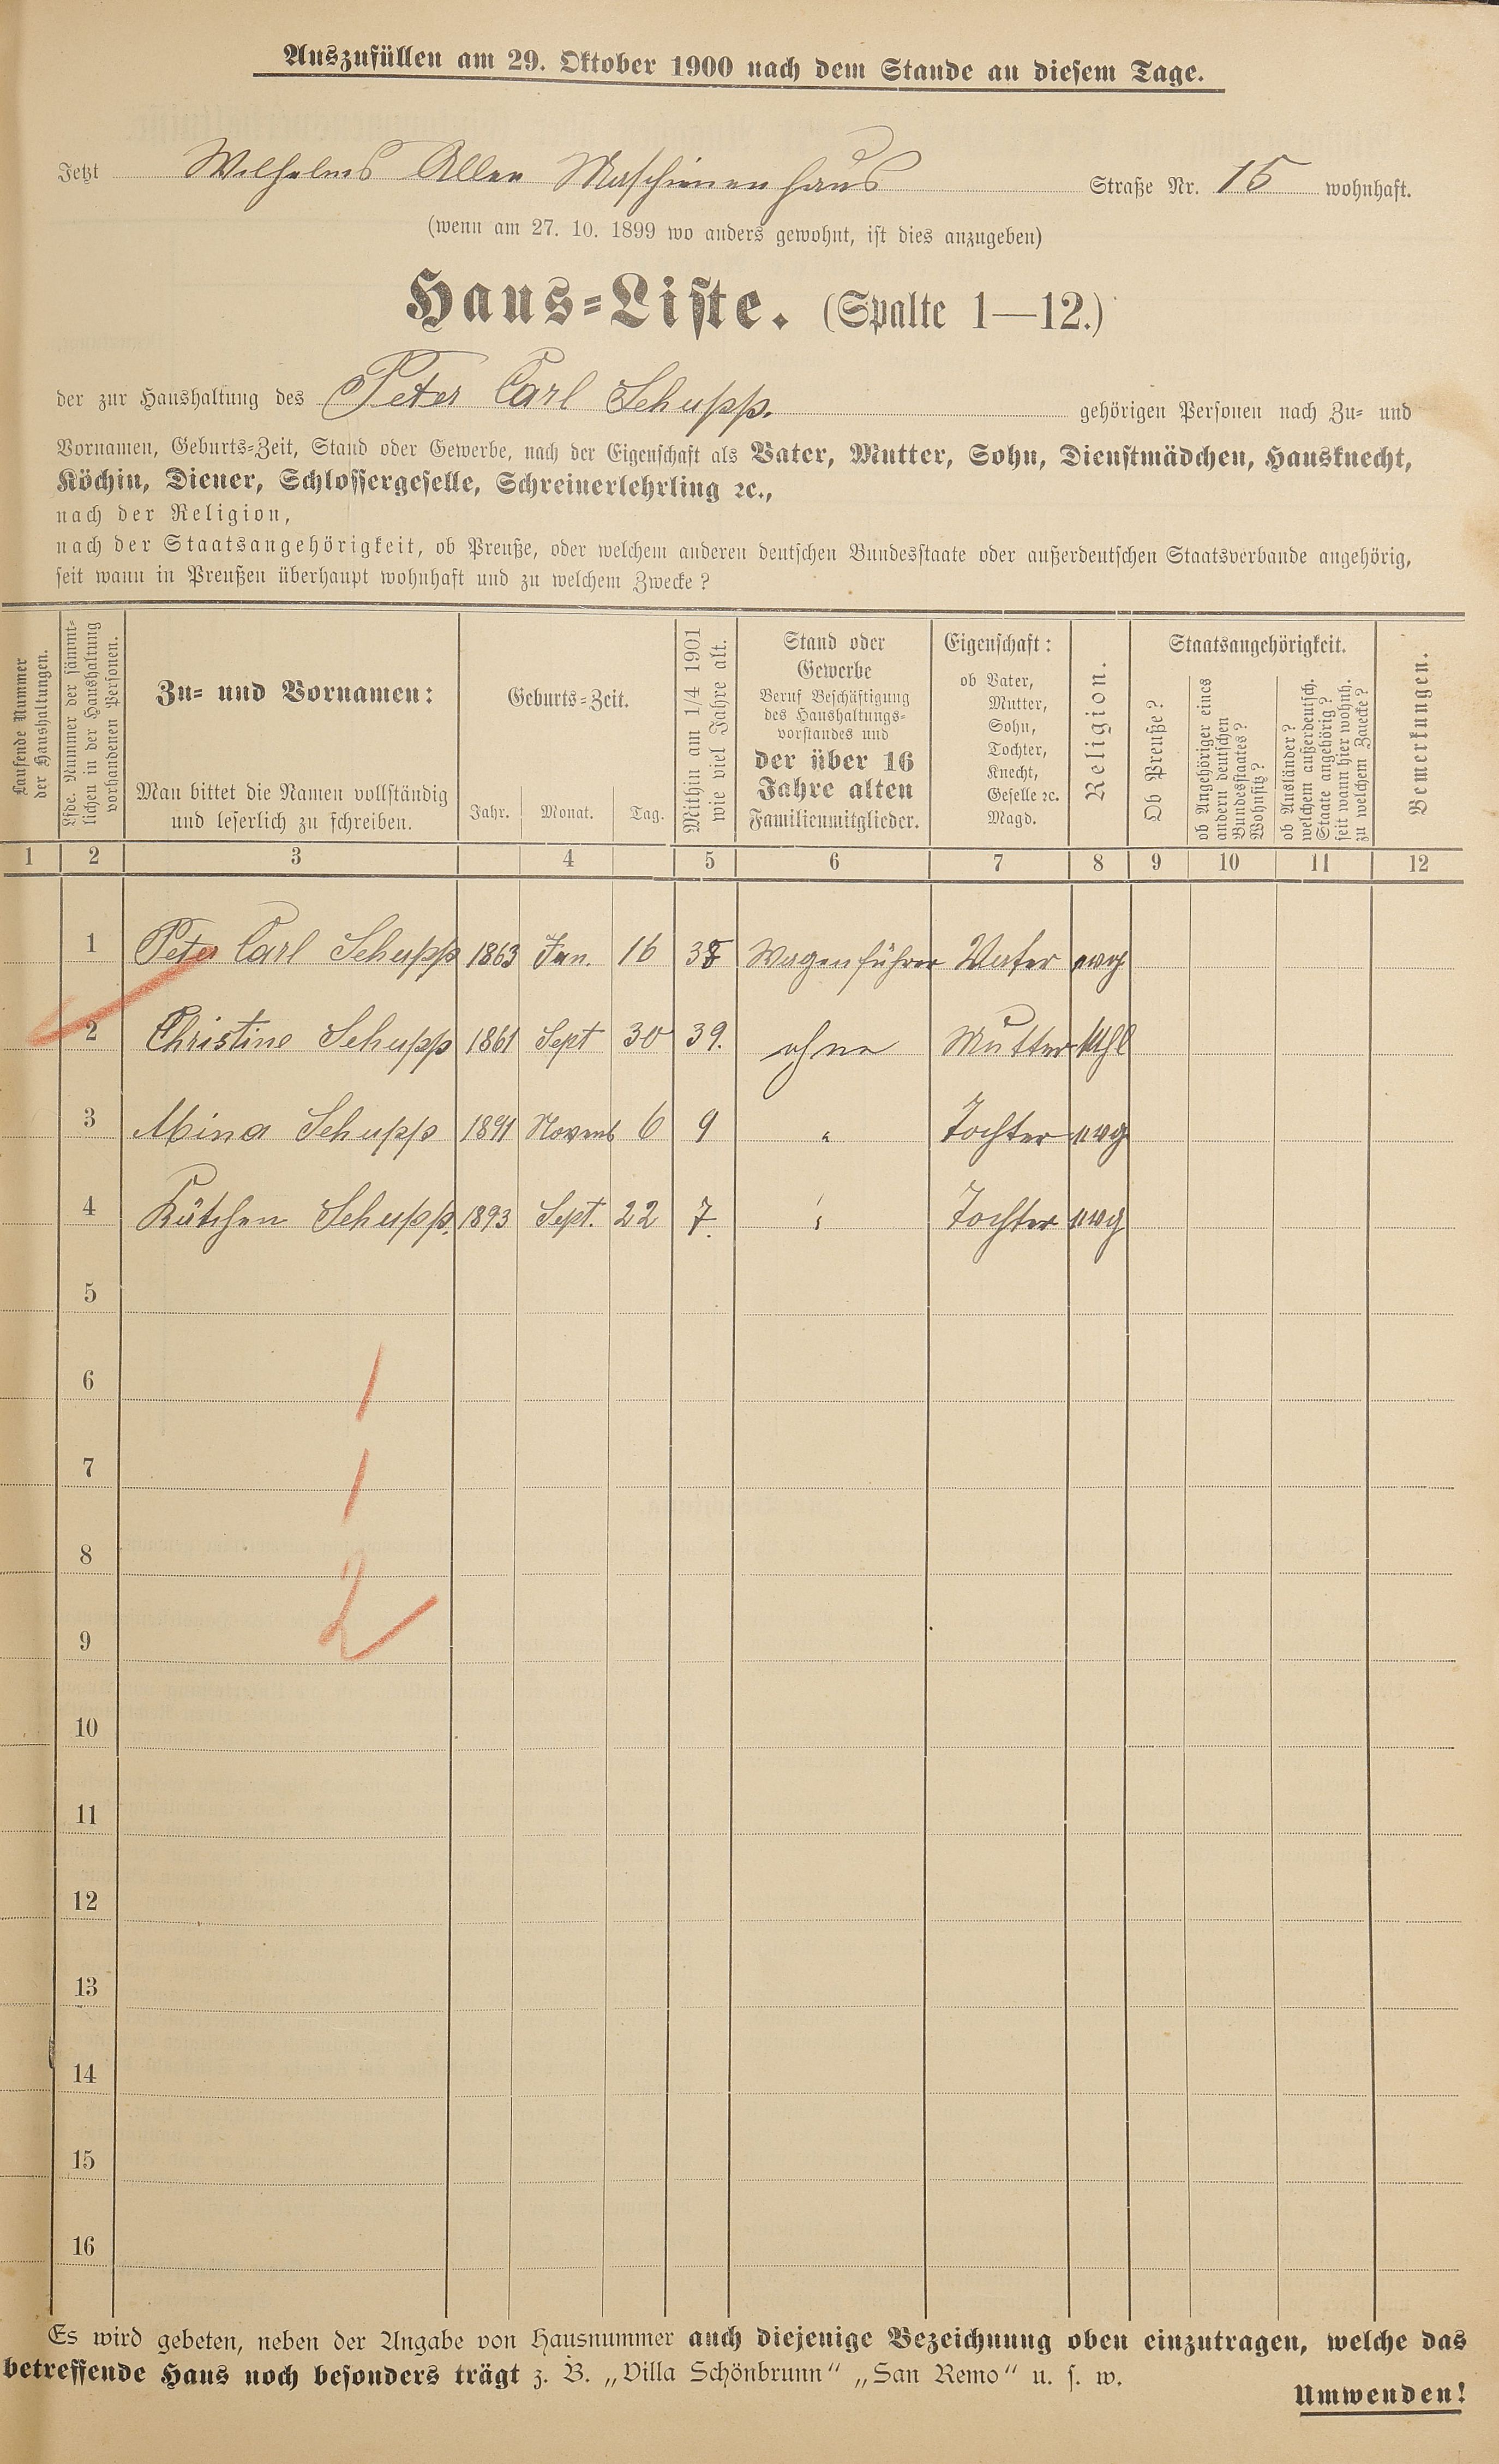 Auszufüllen am 29. Oktober 1900 nach dem Stande an diesem Tage.
Jetzt Wilhelms Allee Maschinenhaus Straße Nr. 15 wohnhaft.
(wenn am 27. 10. 1899 wo anders gewohnt, ist dies anzugeben)
Haus-Liste. (Spalte 1—12.)
der zur Haushaltung des Peter Carl Schupp. gehörigen Personen nach Zu- und
Vornamen, Geburts-Zeit, Stand oder Gewerbe, nach der Eigenschaft als Vater, Mutter, Sohn, Dienstmädchen, Hausknecht,
Köchin, Diener, Schlossergeselle, Schreinerlehrling ꝛc.,
nach der Religion,
nach der Staatsangehörigkeit, ob Preuße, oder welchem anderen deutschen Bundesstaate oder außerdeutschen Staatsverbande angehörig,
seit wann in Preußen überhaupt wohnhaft und zu welchem Zwecke?
Laufende Nummer
der Haushaltungen.
Lfde. Nummer der sämmt-
lichen in der Haushaltung
vorhandenen Personen.
Zu- und Vornamen:
Man bittet die Namen vollständig
und leserlich zu schreiben.
Geburts-Zeit.
Jahr. Monat. Tag.
Mithin am 1/4 1901
wie viel Jahre alt.
Stand oder
Gewerbe
Beruf Beschäftigung
des Haushaltungs-
vorstandes und
der über 16
Jahre alten
Familienmitglieder.
Eigenschaft:
ob Vater,
Mutter,
Sohn,
Tochter,
Knecht,
Geselle ꝛc.
Magd.
Religion.
Staatsangehörigkeit.
Ob Preuße?
ob Angehöriger eines
andern deutschen
Bundesstaates?
Wohnsitz?
ob Ausländer?
welchem außerdeutsch.
Staate angehörig?
seit wann hier wohnh.
zu welchem Zwecke?
Bemerkungen.
1 2 3 4 5 6 7 8 9 10 11 12
1 Peter Carl Schupp 1863 Jan. 16 38 Wagenführer Vater evg
2 Christine Schupp 1861 Sept 30 39. ohne Mutter kthl
3 Mina Schupp 1891 Novemb 6 9 " Tochter evg
4 Kätchen Schupp. 1893 Sept. 22 7. " Tochter evg
5
6
1
7
1
8
2
9
10
11
12
13
14
15
16
Es wird gebeten, neben der Angabe von Hausnummer auch diejenige Bezeichnung oben einzutragen, welche das
betreffende Haus noch besonders trägt z. B. „Villa Schönbrunn" „San Remo" u. s. w.
Umwenden!